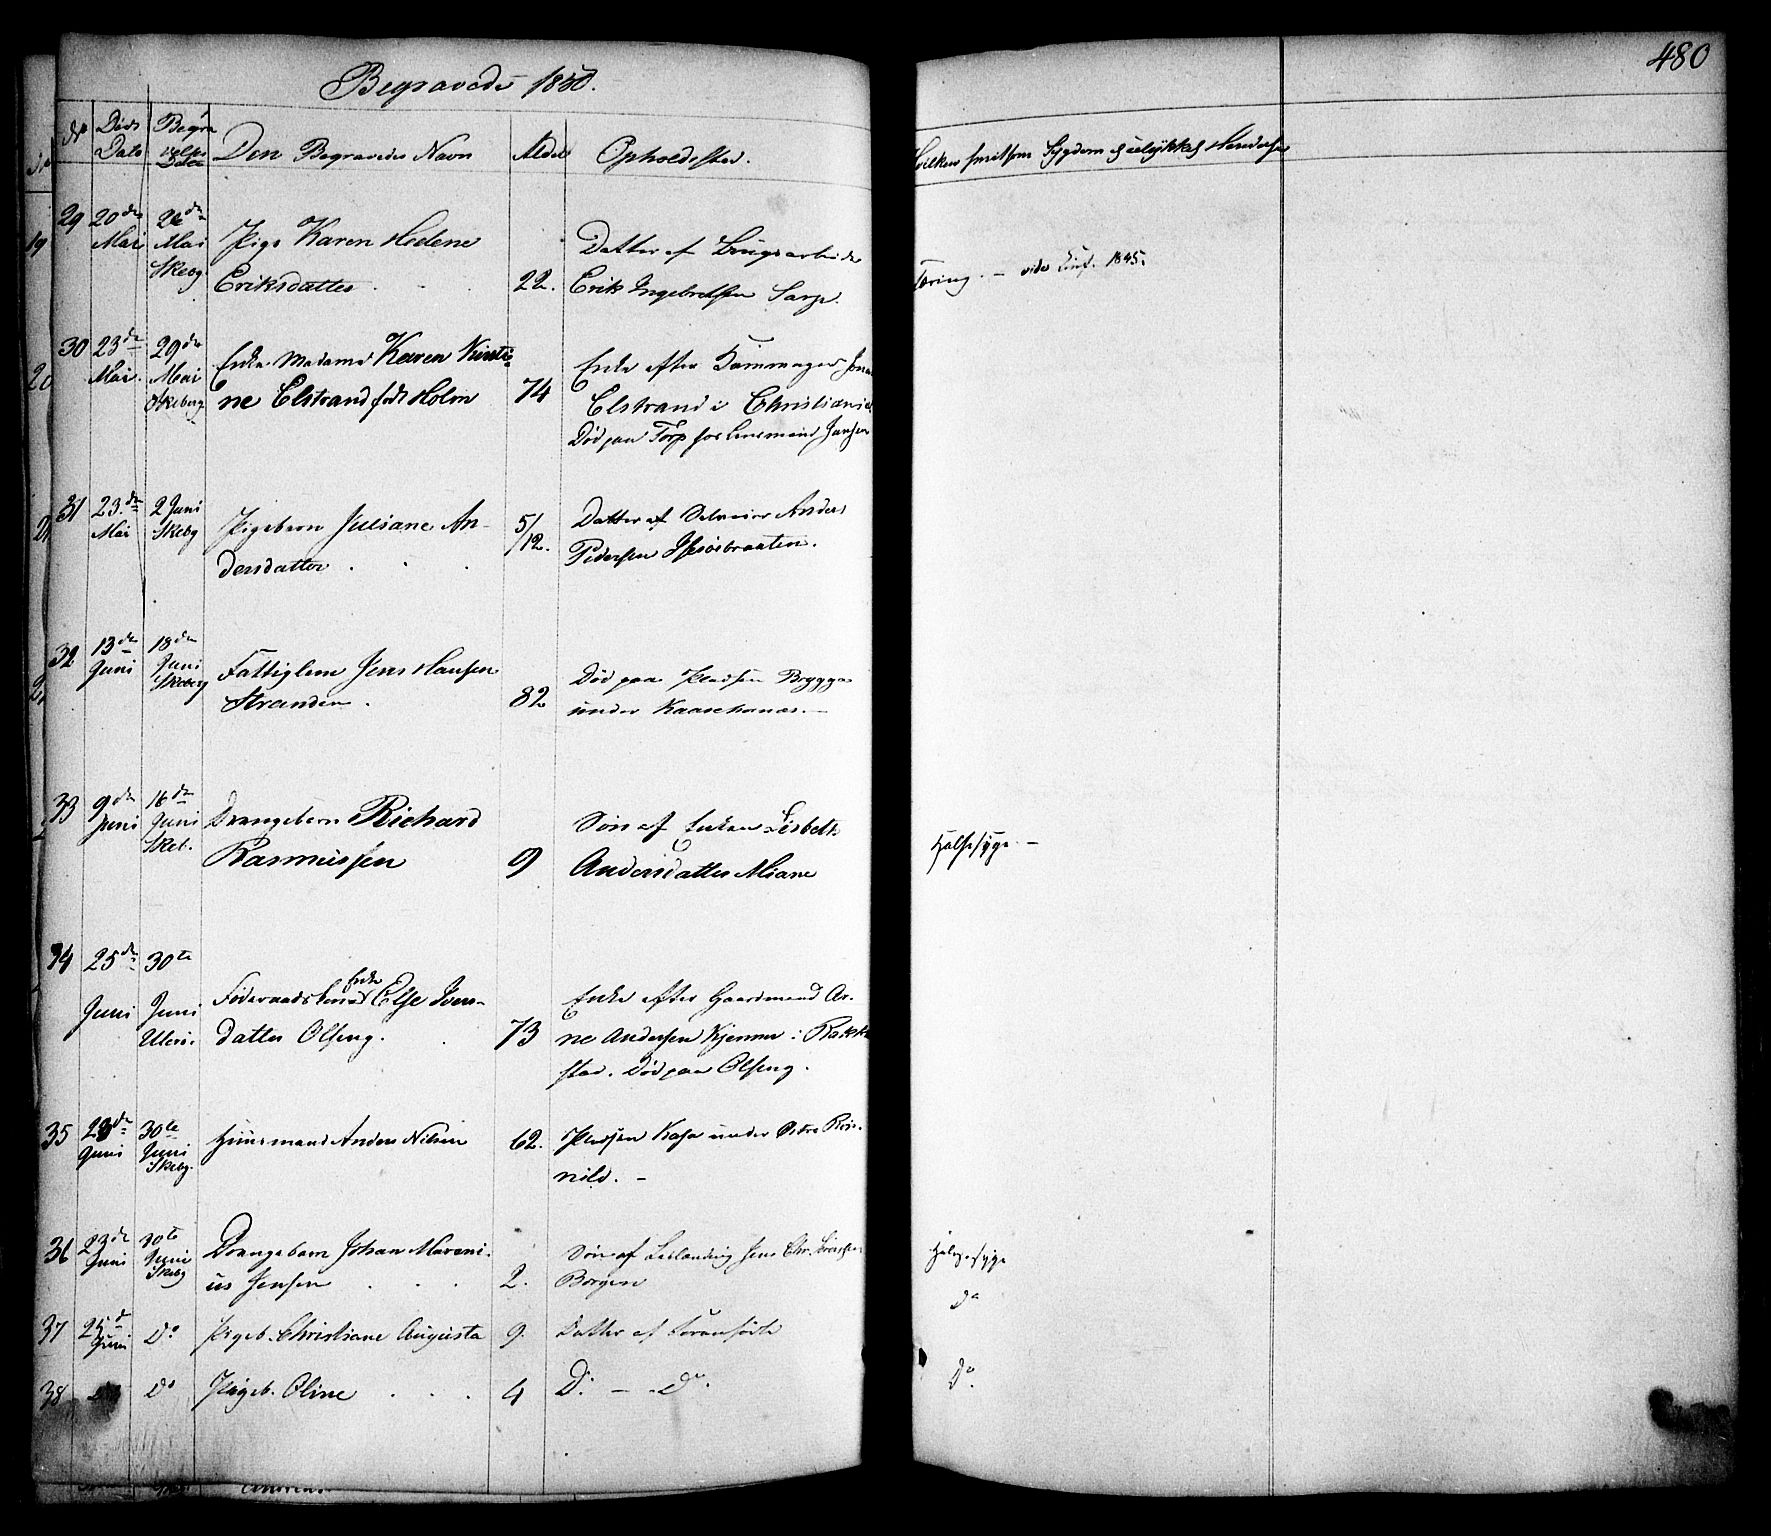 480
Begravede 1850.
No Døds Dato Begravelses Dato Den Begravedes Navn Alder Opholdssted. Hvilken smitsom Sygdom
29 20de Mai 26de Mai Skebg. Pige Karen Helene
Eriksdatter 22. Datter af Brugsarbeider
Erik Ingebretsen Sarp.
Tæring. – vide Conf. 1845.
30 23de Mai. 29de Mai Skeberg Enke Madame Karen Kirsti-
ne Elstrand født Holm 74 Enke efter Kammager
Elstrand i Christiania
Død paa Torp hos Lensmand Jensen
31 23de Mai 2 Juni Skebg Pigebarn Juliane An-
dersdatter 5/12. Datter af Selveier Anders
Pedersen
32 13de Juni 18de Juni Skeberg Fattiglem Jens Hansen
Stranden. 82 Død paa Pladsen Brygga
under
33 9de Juni 16de Juni Skeb. Drengebarn Richard
Rasmussen 9 Søn af Enken Lisbeth
Andersdatter Moane
Halssyge. –
34 25de Juni 30te Juni Føderaadsmand Enke Else Ivers-
datter Olseng. 73 Enke efter Gaardmand Ar-
ne Andersen Kjenner i Rakke-
stad. Død paa Olseng.
35 Juni 30te Juni Skebg. Huusmand Anders Nilsen 62. Pladsen Kasa under
nild. –
36 23de Juni 30te Juni Skebg Drengebarn Johan Mareni-
us Jensen 2. Søn af Jens Chr. Sørensen
Borgen
Halssyge
37 Juni Do Pigeb. Christiane Augusta 9. Datter af Foranførte
Do
38 Do Pigeb. Oline 4 Do – Do.
Do.